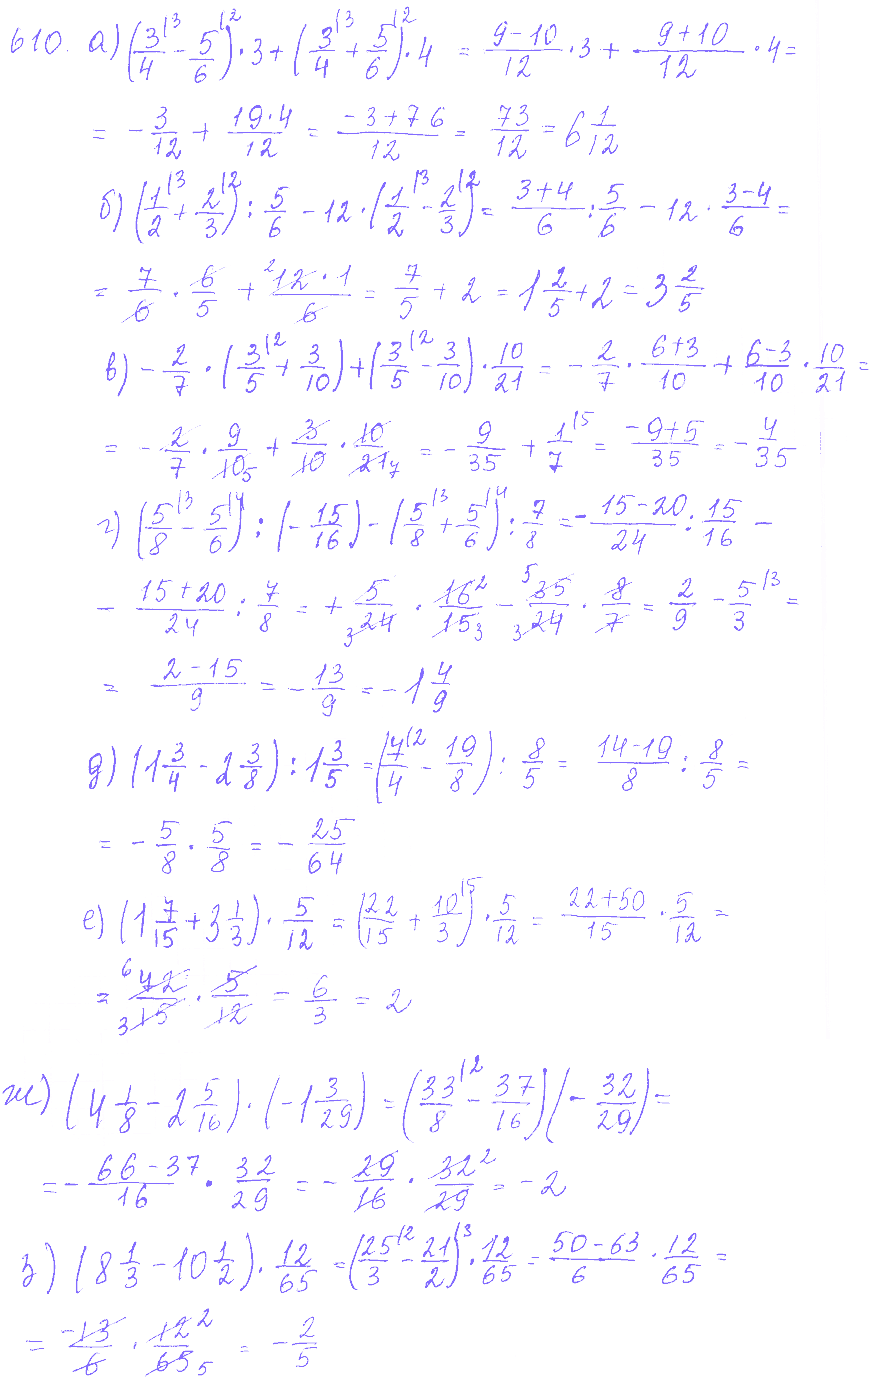 610. а) (3/4 |3 - 5/6 |2) · 3 + (3/4 |3 + 5/6 |2) · 4 = (9-10)/12 · 3 + (9+10)/12 · 4 =
= - 3/12 + (19·4)/12 = (-3+76)/12 = 73/12 = 6 1/12
б) (1/2 |3 + 2/3 |2) : 5/6 - 12 · (1/2 |3 - 2/3 |2) = (3+4)/6 : 5/6 - 12 · (3-4)/6 =
= 7/6 · 6/5 + (²12·1)/6 = 7/5 + 2 = 1 2/5 + 2 = 3 2/5
в) - 2/7 · (3/5 |2 + 3/10) + (3/5 |2 - 3/10) · 10/21 = - 2/7 · (6+3)/10 + (6-3)/10 · 10/21 =
= - 2/7 · 9/10₅ + 3/10 · 10/21₇ = - 9/35 + 1/7 |5 = (-9+5)/35 = - 4/35
г) (5/8 |3 - 5/6 |4) : (- 15/16) - (5/8 |3 + 5/6 |4) : 7/8 = - (15-20)/24 : 15/16 -
- (15+20)/24 : 7/8 = + 5/₃24 · 16²/15₃ - ⁵35/₃24 · 8/7 = 2/9 - 5/3 |3 =
= (2-15)/9 = - 13/9 = - 1 4/9
д) (1 3/4 - 2 3/8) : 1 3/5 = (7/4 |2 - 19/8) : 8/5 = (14-19)/8 : 8/5 =
= - 5/8 · 5/8 = - 25/64
е) (1 7/15 + 3 1/3) · 5/12 = (22/15 + 10/3 |5) · 5/12 = (22+50)/15 · 5/12 =
= ⁶72/₃15 · 5/12 = 6/3 = 2
ж) (4 1/8 - 2 5/16) · (- 1 3/29) = (33/8 |2 - 37/16) (- 32/29) =
= - (66-37)/16 · 32/29 = - 29/16 · 32²/29 = - 2
з) (8 1/3 - 10 1/2) · 12/65 = (25/3 |2 - 21/2) |3 · 12/65 = (50-63)/6 · 12/65 =
= -13/6 · 12²/65₅ = - 2/5